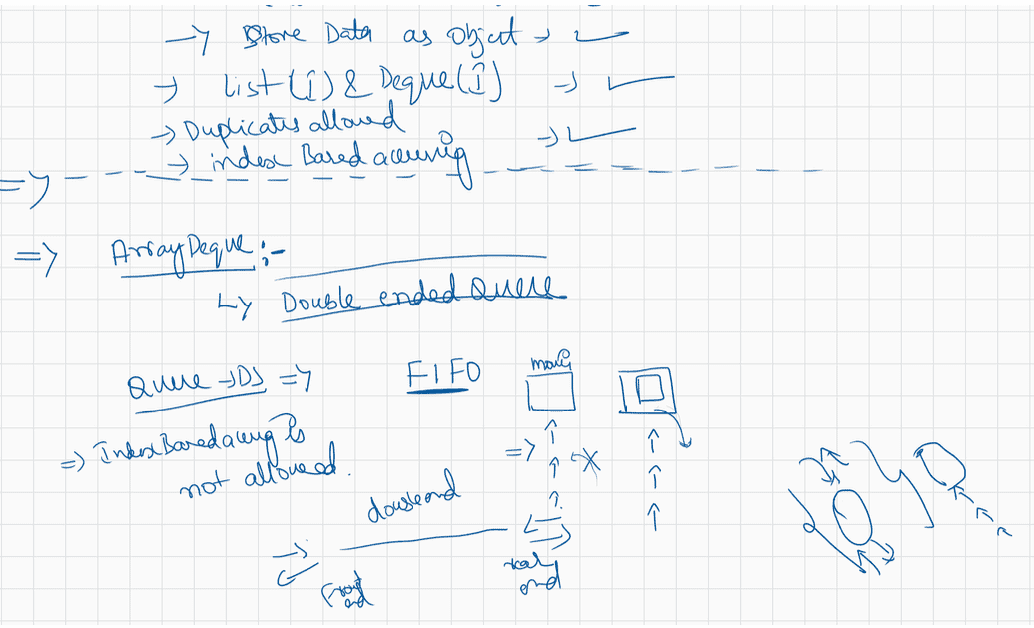 → Store Data as Object → ✓
→ List(I) & Deque(I) → ✓
→ Duplicates allowed → ✓
→ index Based accessing
=>
=> ArrayDeque :-
↳ Double ended Queue
Queue → DS => FIFO
=> Index Based accessing is
not allowed.
double end
Front
end
rear
end